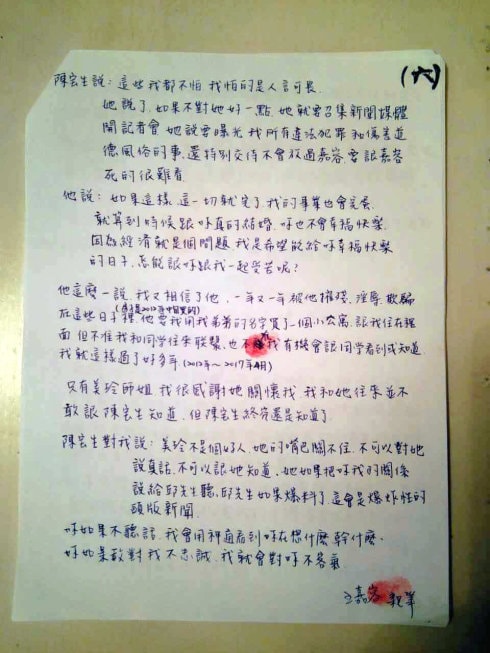 (六)
陳宏生說：這些我都不怕 我怕的是人言可畏
她說了，如果不對她好一點，她就要召集新聞媒體
開記者會 她說要曝光我所有違法犯罪和傷害道
德風俗的事，還特別交待不會放過嘉容 要讓嘉容
死的很難看
他說：如果這樣 這一切就完了，我的事業也會完蛋，
就算到時候跟妳真的結婚，妳也不會幸福快樂
因為經濟就是個問題 我是希望能給妳幸福快樂
的日子，怎能讓妳跟我一起受苦呢？
他這麼一說，我又相信了他，一年又一年被他摧殘、淫辱、欺騙
(房子是2012年中旬買的)
在這些日子裡，他要我用我弟弟的名字買了一個小公寓，讓我住在裡
面 但不准我和同學往來聯繫，也不 我有機會讓同學看到或知道
我就這樣過了好多年 (2012年～2017年4月)
只有美玲師姐 我很感謝她關懷我 我和她往來並不
敢讓陳宏生知道，但陳宏生終究還是知道了
陳宏生對我說：美玲不是個好人，她的嘴巴關不住，不可以對她
說真話，不可以讓她知道，她如果把妳我的關係
說給邱先生聽，邱先生如果爆料了，這會是爆炸性的
頭版新聞，
妳如果不聽話，我會用神通看到妳在想什麼 幹什麼，
妳如果敢對我不忠誠，我就會對妳不客氣
王嘉容 親筆